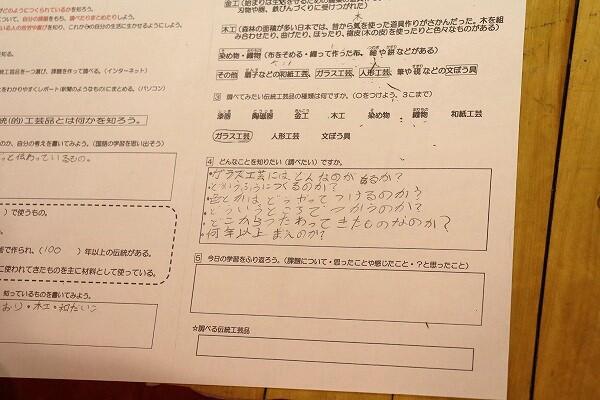 どのようにつくられているかを知ろう。
について、自分の課題をもち、調べたりまとめたりしよう。
いる人の苦労や喜びを知り、これからの自分の生活に生かせるようにしよう。
統工芸品を一つ選び、課題を作って調べる。(インターネット)
をわかりやすくレポート(新聞のようなもの)にまとめる。(パソコン)
統(的)工芸品とは何かを知ろう。
のか、自分の考えを書いてみよう。(国語の学習を思い出そう)
っと伝わっているもの。
)で使うもの。
で作られ、(100)年以上の伝統がある。
に使われてきたものを主に材料として使っている。
知っているものを書いてみよう。
おり・木工・和だいこ
金工
刃物や器、鉄びんづくりに受けつがれた)
木工(森林の面積が多い日本では、昔から木を使った道具作りがさかんだった。木を組
み合わせたり、曲げたり、ほったり、樹皮(木の皮)を使ったりと色々なものがある)
染め物・織物(布をそめる・織って作った布。絵や餅などがある)
その他 扇子などの和紙工芸、ガラス工芸、人形工芸、筆や硯などの文ぼう具
3 調べてみたい伝統工芸品の種類は何ですか。(○をつけよう。3こまで)
漆器 陶磁器 金工 木工 染め物 織物 和紙工芸
ガラス工芸 人形工芸 文ぼう具
4 どんなことを知りたい(調べたい)ですか。
・ガラス工芸にはどんなのがあるか?
・どういうふうにつくるのか?
・色とかはどうやってつけるのか?
・どういうところでつかうのか?
・どこからつたわってきたものなのか?
・何年以上まえのか?
5 今日の学習をふり返ろう。(課題について・思ったことや感じたこと・?と思ったこと)
☆調べる伝統工芸品